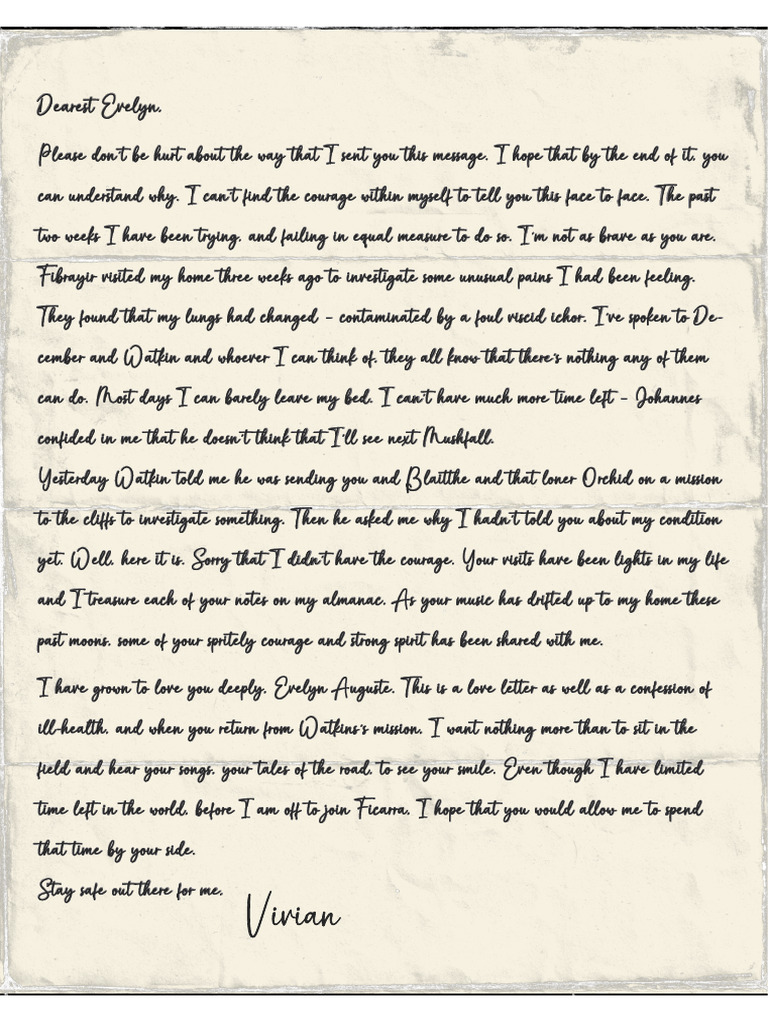 Dearest Evelyn,
Please don't be hurt about the way that I sent you this message. I hope that by the end of it, you
can understand why. I can't find the courage within myself to tell you this face to face. The past
two weeks I have been trying, and failing in equal measure to do so. I'm not as brave as you are.
Fibrayir visited my home three weeks ago to investigate some unusual pains I had been feeling.
They found that my lungs had changed - contaminated by a foul viscid ichor. I've spoken to De-
cember and Watkin and whoever I can think of, they all know that there's nothing any of them
can do. Most days I can barely leave my bed. I can't have much more time left - Johannes
confided in me that he doesn't think that I'll see next Mushfall.
Yesterday Watkin told me he was sending you and Blaitthe and that loner Orchid on a mission
to the cliffs to investigate something. Then he asked me why I hadn't told you about my condition
yet. Well, here it is. Sorry that I didn't have the courage. Your visits have been lights in my life
and I treasure each of your notes on my almanac. As your music has drifted up to my home these
past moons, some of your spritely courage and strong spirit has been shared with me.
I have grown to love you deeply, Evelyn Auguste. This is a love letter as well as a confession of
ill-health, and when you return from Watkins's mission, I want nothing more than to sit in the
field and hear your songs, your tales of the road, to see your smile. Even though I have limited
time left in the world, before I am off to join Ficarra, I hope that you would allow me to spend
that time by your side.
Stay safe out there for me,
Vivian